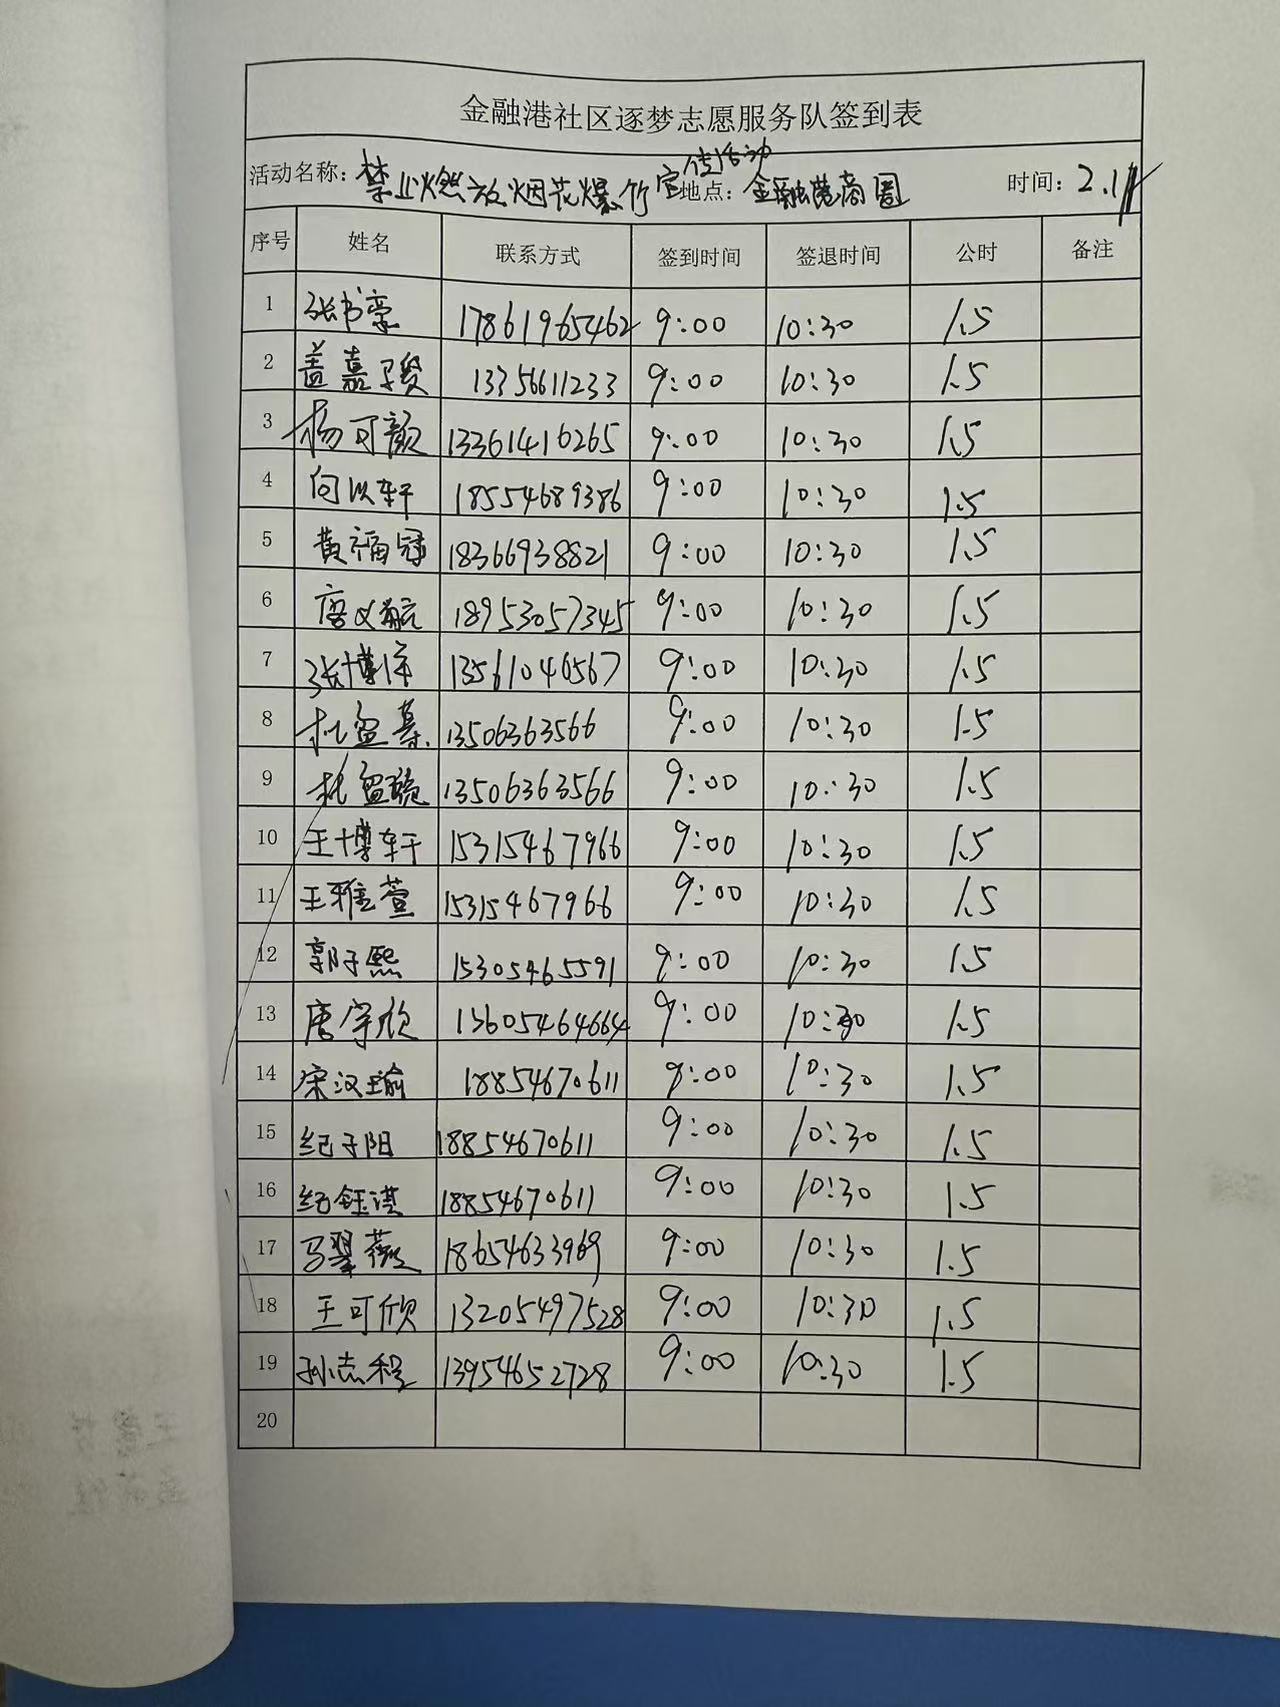 金融港社区逐梦志愿服务队签到表
活动名称：禁止燃放烟花爆竹宣传活动 地点：金融港商圈 时间：2.1
序号 姓名 联系方式 签到时间 签退时间 公时 备注
1 张书豪 17861965462 9:00 10:30 1.5
2 盖嘉骏 13356611233 9:00 10:30 1.5
3 杨可颜 13361416265 9:00 10:30 1.5
4 向以轩 18554689386 9:00 10:30 1.5
5 黄福冠 18366938821 9:00 10:30 1.5
6 唐义航 18953057345 9:00 10:30 1.5
7 张博洋 13561046567 9:00 10:30 1.5
8 杜盈 13506363566 9:00 10:30 1.5
9 杜盈 13506363566 9:00 10:30 1.5
10 王博轩 15315467966 9:00 10:30 1.5
11 王雅萱 15315467966 9:00 10:30 1.5
12 郭子熙 15305465591 9:00 10:30 1.5
13 唐宇欣 13605464664 9:00 10:30 1.5
14 宋汉瑜 18854670611 9:00 10:30 1.5
15 纪子阳 18854670611 9:00 10:30 1.5
16 纪钰淇 18854670611 9:00 10:30 1.5
17 马翠薇 18654633969 9:00 10:30 1.5
18 王可欣 13205497528 9:00 10:30 1.5
19 孙志程 13954652728 9:00 10:30 1.5
20